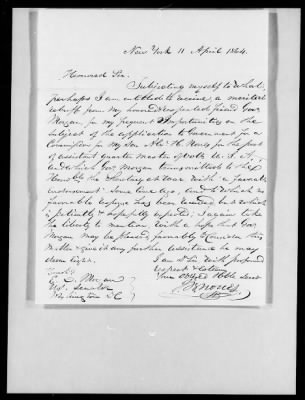 New York 11 April 1864.
Honored Sir.
Subjecting myself to what
perhaps I am entitled to receive, a merited
rebuff from my honored & respected friend Gov
Morgan, for my frequent importunities on the
subject of the application to Government for a
Commission for my Son Alex H. Nones for the post
of assistant quarter master of vols. U.S.A.,
and which Gov. Morgan transmitted to the
Honble the Secretary at War with a favorable
endorsement some time ago, and to which no
favorable response has been received but which
is patiently & hopefully expected; I again take
the liberty to mention with a hope that Gov
Morgan may be pleased, favorably to consider this
matter & give it any further assistance he may
deem right.
I am D Sir With profound
respect & esteem
Your Obliged Hble Servt
Nones
E. D. Morgan
U.S. Senator
Washington D.C.